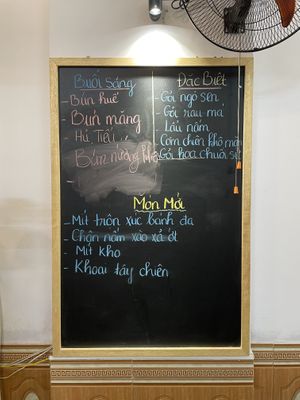 Buổi Sáng
- Bún huế
- Bún măng
- Hủ Tiếu
- Bún nướng
Đặc Biệt
- Gỏi ngó sen
- Gỏi rau má
- Lẩu nấm
- Cơm chiên
- Gỏi hoa chuối
Món Mới
- Mít trộn xúc bánh đa
- Chân nấm xào xả ớt
- Mít kho
- Khoai tây chiên